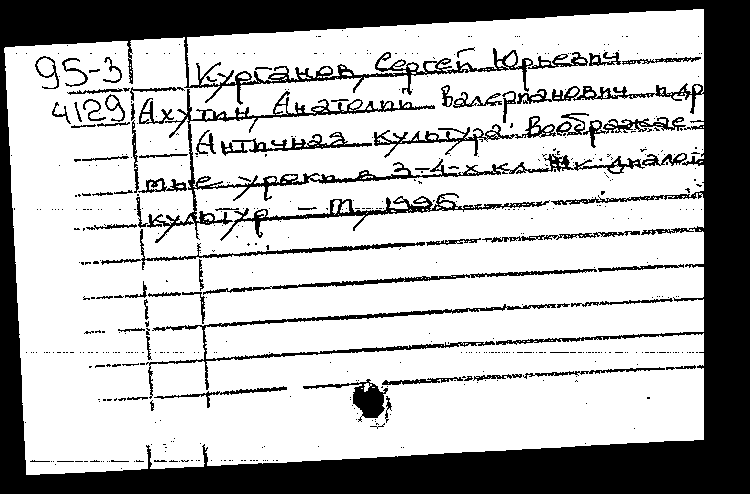 95-3 Курганов, Сергей Юрьевич
4129 Ахутин, Анатолий Валерианович и др
Античная культура: Воображае-
мые уроки в 3-4-х кл шк диалога
культур – М, 1995